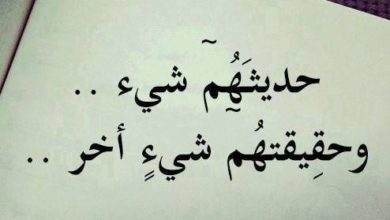 حديثَهُمٓ شيء ..
وحقِيقتهُمٓ شيءٍ أخر ..